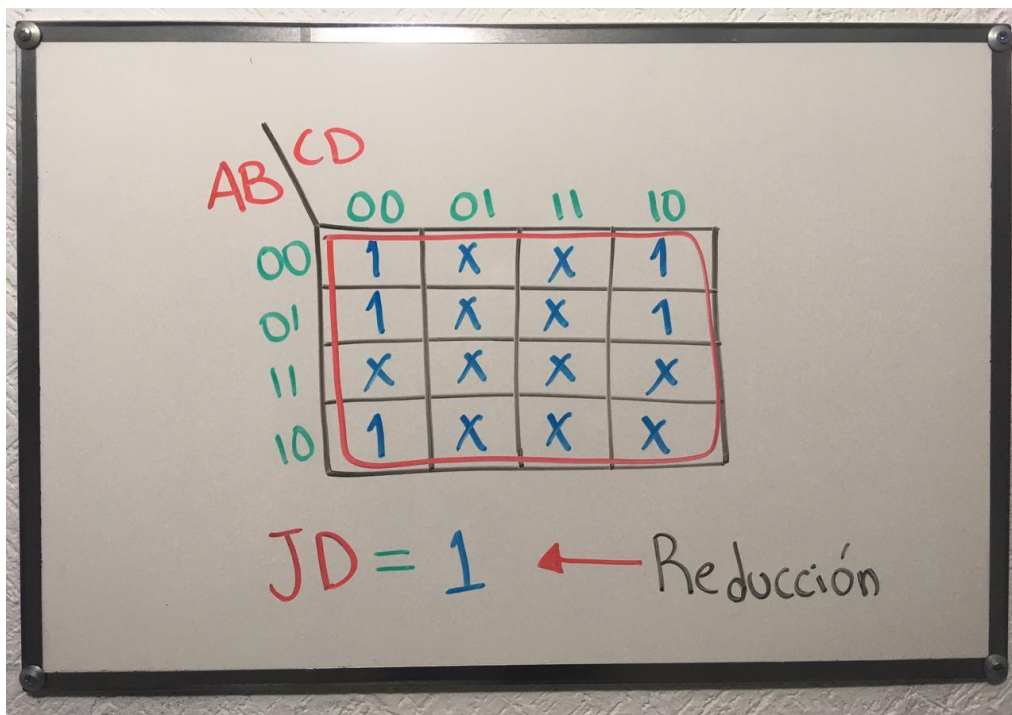 CD
AB
00 01 11 10
00 1 X X 1
01 1 X X 1
11 X X X X
10 1 X X X
JD = 1 ← Reducción